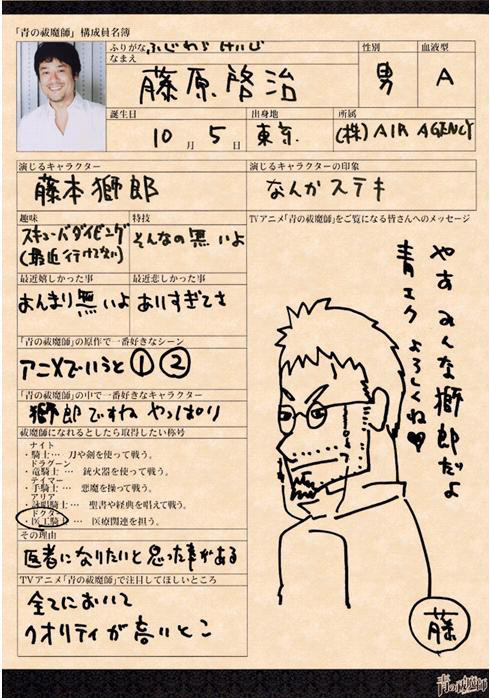 「青の祓魔師」構成員名簿
ふりがな ふじわら けいじ
なまえ 藤原啓治
性別 男
血液型 A
誕生日 10月5日
出身地 東京
所属 (株)AIR AGENCY
演じるキャラクター
藤本獅郎
演じるキャラクターの印象
なんかステキ
趣味
スキューバダイビング
(最近行けてない)
特技
そんなの無いよ
最近嬉しかった事
あんまり無いよ
最近悲しかった事
ありすぎてさ
「青の祓魔師」の原作で一番好きなシーン
アニメでいうと①②
「青の祓魔師」の中で一番好きなキャラクター
獅郎ですね やっぱり
祓魔師になれるとしたら取得したい称号
ナイト
・騎士… 刀や剣を使って戦う。
ドラグーン
・竜騎士… 銃火器を使って戦う。
テイマー
・手騎士… 悪魔を操って戦う。
アリア
・詠唱騎士… 聖書や経典を唱えて戦う。
ドクター
・医工騎士… 医療関連を担う。
その理由
医者になりたいと思った事がある
TVアニメ「青の祓魔師」で注目してほしいところ
全てにおいて
クオリティが高いとこ
TVアニメ「青の祓魔師」をご覧になる皆さんへのメッセージ
やあ みんな獅郎だよ
青エク よろしくね♥
藤
青の祓魔師